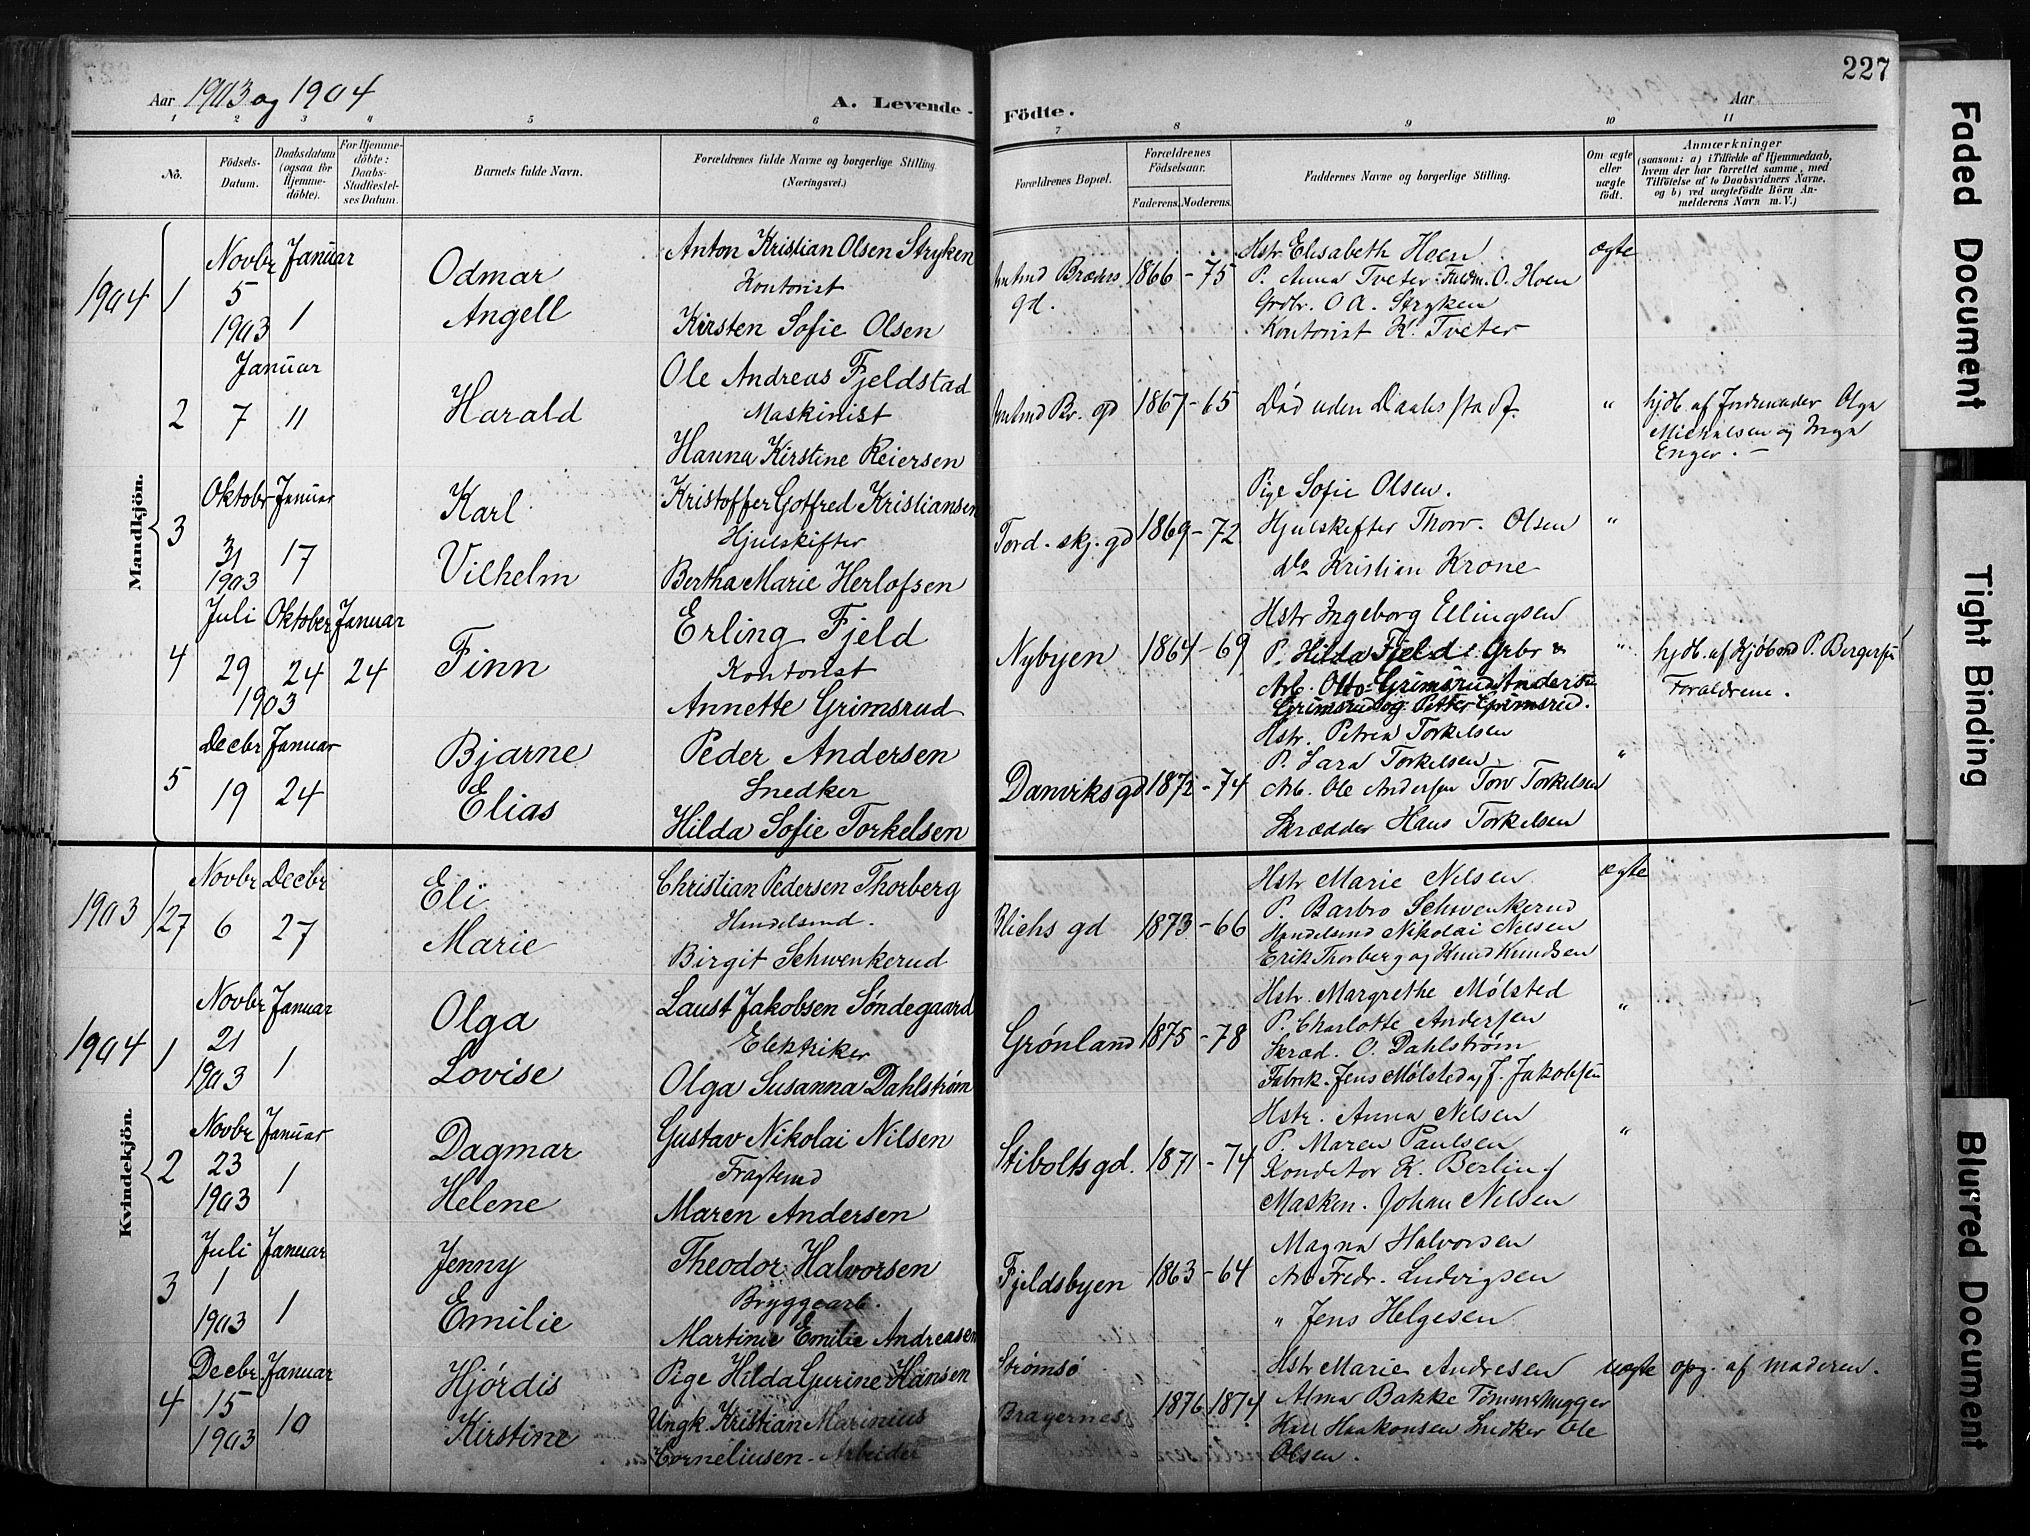 Aar 1903 og 1904
A. Levende-
Födte.
Aar
227
1 2 3 4 5 6 7 8 9 10 11
No.
Födsels-
Datum.
Daabsdatum
(ogsaa for
Hjemme-
döbte).
For Hjemme-
döbte:
Daabs-
Stadfæstel-
ses Datum.
Barnets fulde Navn.
Forældrenes fulde Navne og borgerlige Stilling.
(Næringsvei.)
Forældrenes Bopæl.
Forældrenes
Födselsaar.
Faderens. Moderens.
Faddernes Navne og borgerlige Stilling.
Om ægte
eller
uægte
födt.
Anmærkninger
(saasom: a) i Tilfælde af Hjemmedaab,
hvem der har forrettet samme, med
Tilföielse af to Daabsvidners Navne,
og b) ved uægtefödte Börn An-
melderens Navn m. V.)
Mandkjön.
1904
1
Novbr Januar
5 1
1903
Odmar
Angell
Anton Kristian Olsen Stryken
Kontorist
Kirsten Sofie Olsen
gd.
1866 - 75
Hstr Elisabeth Hoen
P. Anna Tveter Fuldm. O. Hoen
Grdbr. O A. Stryken
Kontorist K. Tveter
ægte
2
Januar
7 11
Harald
Ole Andreas Fjeldstad
Maskinist
Hanna Kirstine Reiersen
Amtmd Br. gd
1867 - 65
Död uden Daabs stadf.
"
hjdb. af Jordmoder Olga
Michalsen og Inga
Enger. -
3
Oktobr Januar
31 17
1903
Karl
Vilhelm
Kristoffer Gotfred Kristiansen
Hjulskifter
Bertha Marie Herlofsen
Tord. skj. gd
1869 - 72
Pige Sofie Olsen.
Hjulskifter Thorv. Olsen
do Kristian Krone
"
4
Juli Oktober Januar
29 24 24
1903
Finn
Erling Fjeld
Kontorist
Annette Grimsrud
Nybyen
1864 - 69
Hstr Ingeborg Ellingsen
P. Hilda Fjeld. Grbr
Arb. Otto Grimsrud Anders
Grimsrud og Petter Grimsrud.
"
hjdb. af Kjöbmd P. Bergersen
Forældrene.
5
Decbr Januar
19 24
Bjarne
Elias
Peder Andersen
Snedker
Hilda Sofie Torkelsen
Danviksgd
1872 - 74
Hstr. Petrea Torkelsen
P. Lara Torkelsen
Arb. Ole Andersen Torv Torkelsen
Skrædder Hans Torkelsen
"
Kvindekjön.
1903
127
Novbr Decbr
6 27
Eli
Marie
Christian Pedersen Thorberg
Handelsmd.
Birgit Schwenkerud
Blichs gd
1873 - 66
Hstr Marie Nilsen
P. Barbro Schwenkerud
Handelsmd Nikolai Nilsen
Erik Thorberg og Knud Knudsen
ægte
1904
1
Novbr Januar
21 1
1903
Olga
Lovise
Laust Jakobsen Söndegaard
Elektriker
Olga Susanna Dahlström
Grønland
1875 - 78
Hstr. Margrethe Mølsted
P. Charlotte Andersen
Skræd. O. Dahlstrøm
Fabrik. Jens Mølsted og J. Jakobsen
"
2
Novbr Januar
23 1
1903
Dagmar
Helene
Gustav Nikolai Nilsen
Fragtmd
Maren Andersen
Stiboltsgd.
1871 - 74
Hstr. Anna Nilsen
P. Maren Paulsen
Konditor K. Berling
Maskin. Johan Nilsen
"
3
Juli Januar
1 1
1903
Jenny
Emilie
Theodor Halvorsen
Bryggearb.
Martinie Emilie Andreasen
Fjeldsbyen
1863 - 64
Magna Halvorsen
Arb Fredr. Ludvigsen
" Jens Helgesen
4
Decbr. Januar
15 10
1903
Hjördis
Kirstine
Pige Hilda Gurine Hansen
Ungk. Kristian Marinius
Corneliusen - Arbeider
Strømsø
Bragernes
1876 1874
Hstr Marie Andresen
Alma Bakke Tømmerhugger
Karl Haakonsen Snedker Ole
Olsen.
uægte
opg. af moderen.
Faded Document
Tight Binding
Blurred Document